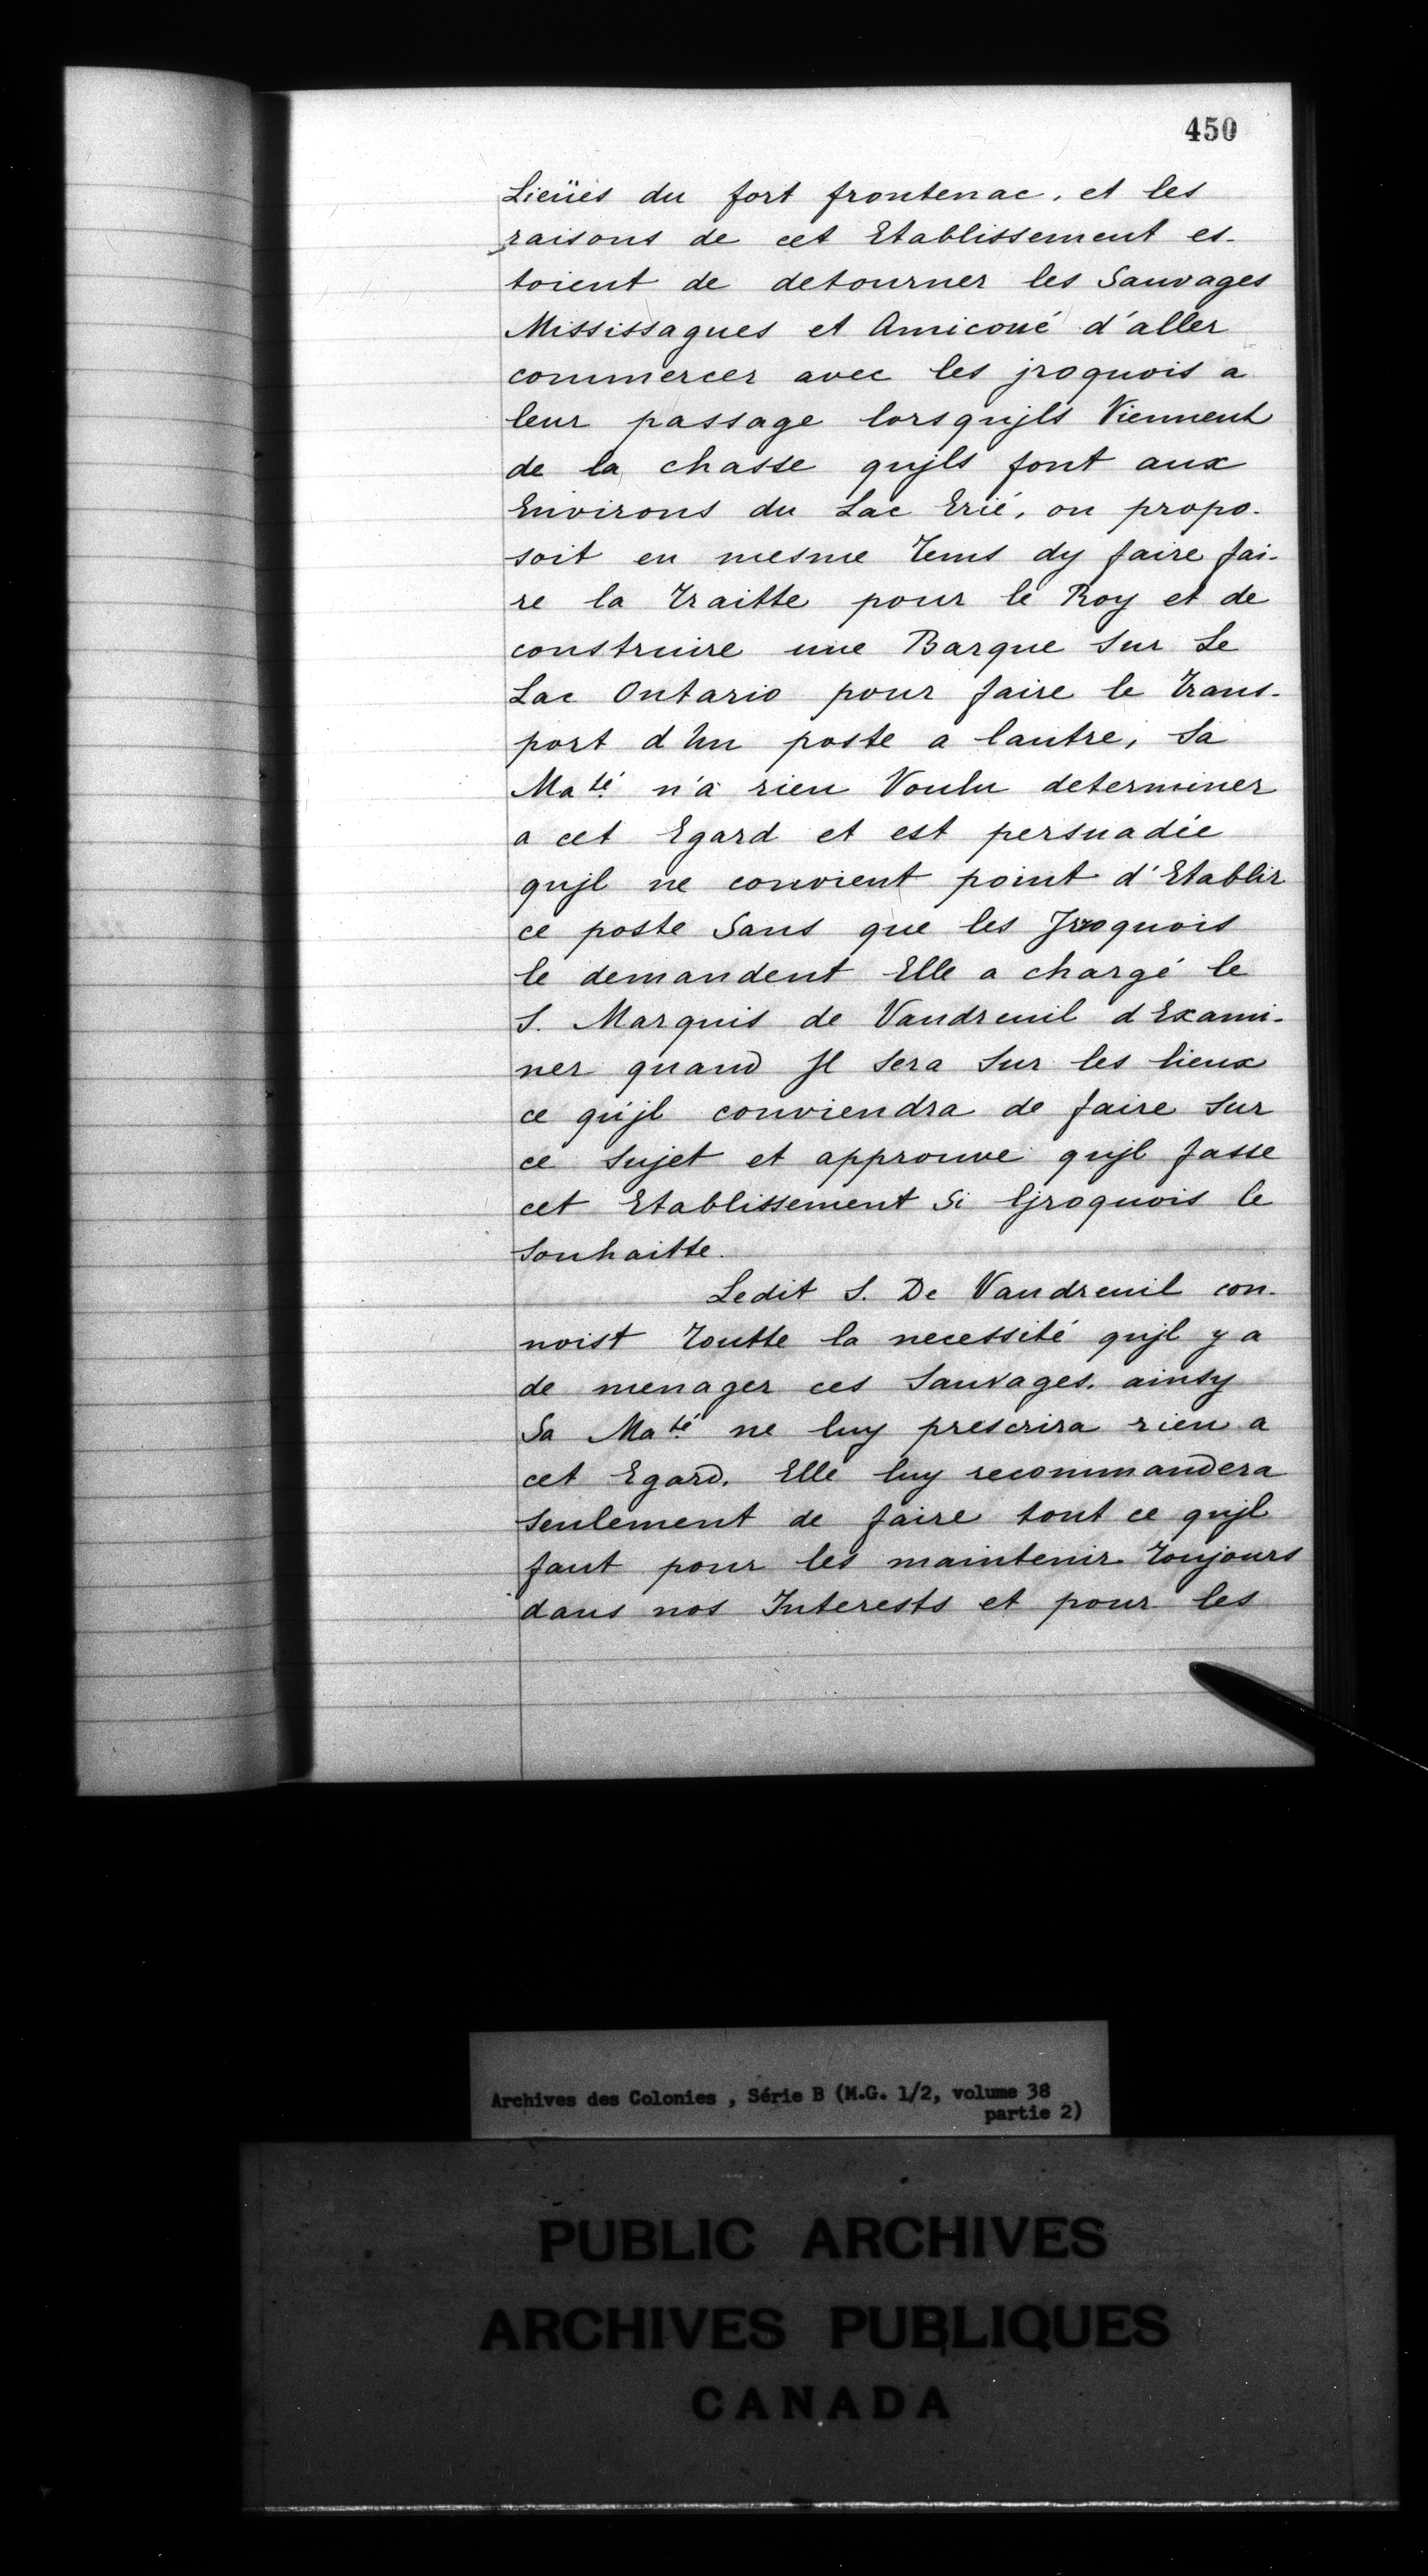 450
Lieües du fort frontenac, et les
raisons de cet Etablissement es-
toient de detourner les Sauvages
Mississagues et Amicoué d'aller
commercer avec les jroquois a
leur passage lorsqujls Viennent
de la chasse qujls font aux
Environs du Lac Erié, on propo-
soit en mesme Tems dy faire fai-
re la Traitte pour le Roy et de
construire une Barque Sur Le
Lac Ontario pour faire le Trans-
port d'Un poste a lautre, Sa
Maté n'a rien Voulu determiner
a cet Egard et est persuadée
qujl ne convient point d'Etablir
ce poste Sans que les Jroquois
le demandent Elle a chargé le
S. Marquis de Vaudreuil d'Exami-
ner quand Jl Sera Sur les lieux
ce qu'jl conviendra de faire Sur
ce Sujet et approuve qujl fasse
cet Etablissement Si ljroquois le
Souhaitte.
Ledit S. De Vaudreuil con-
noist Toutte la necessité qujl y a
de menager ces Sauvages, ainsy
Sa Maté ne luy prescrira rien a
cet Egard, Elle luy recommandera
Seulement de faire tout ce qujl
faut pour les maintenir Toujours
dans nos Interests et pour les
Archives des Colonies , Série B (M.G. 1/2, volume 38
partie 2)
PUBLIC ARCHIVES
ARCHIVES PUBLIQUES
CANADA